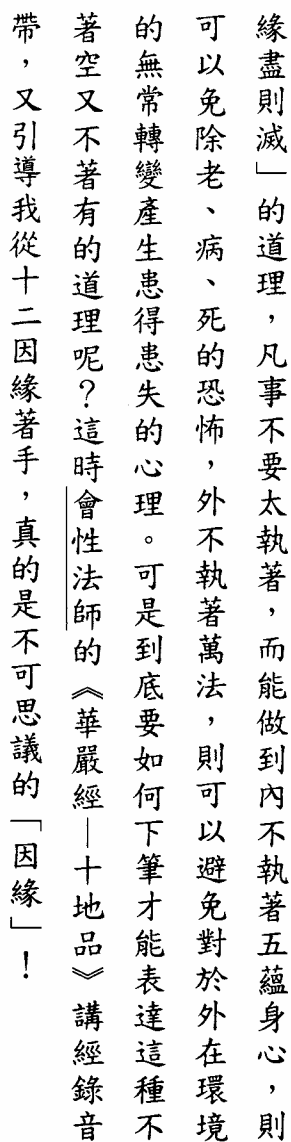 緣盡則滅」的道理，凡事不要太執著，而能做到內不執著五蘊身心，則
可以免除老、病、死的恐怖，外不執著萬法，則可以避免對於外在環境
的無常轉變產生患得患失的心理。可是到底要如何下筆才能表達這種不
著空又不著有的道理呢？這時會性法師的《華嚴經—十地品》講經錄音
帶，又引導我從十二因緣著手，真的是不可思議的「因緣」！